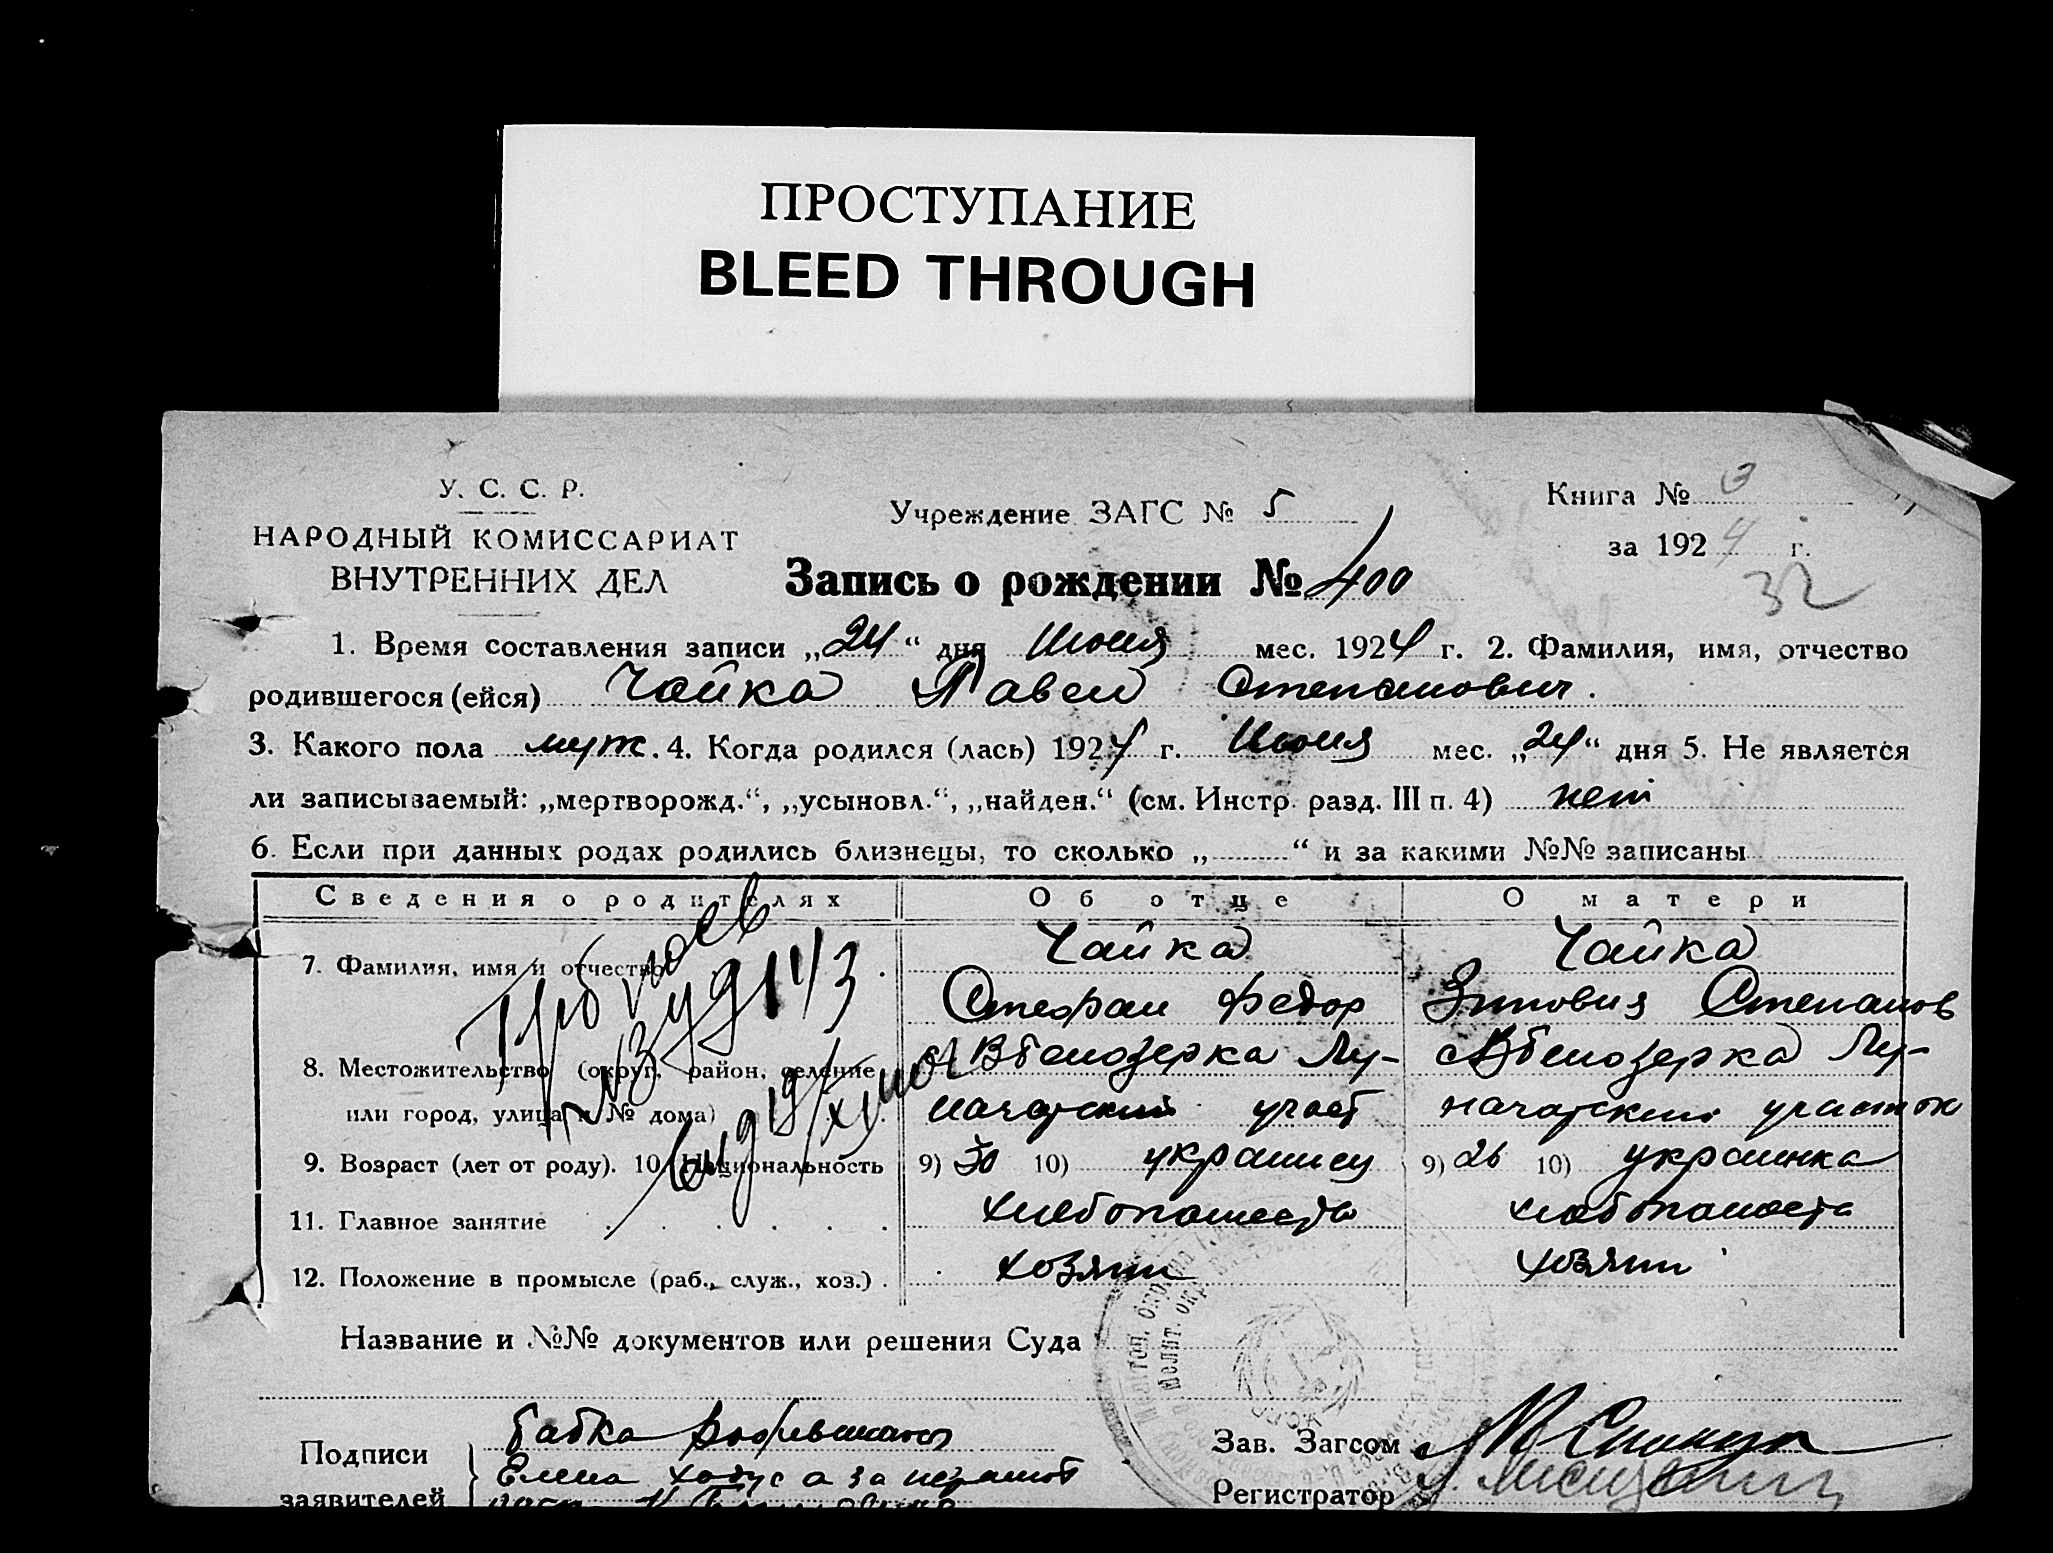 ПРОСТУПАНИЕ
BLEED THROUGH
У. С. С. Р.
НАРОДНЫЙ КОМИССАРИАТ
ВНУТРЕННИХ ДЕЛ
Учреждение ЗАГС № 5
Книга № 3
за 1924 г.
32
Запись о рождении № 400
1. Время составления записи „24“ дня Июня мес. 1924 г. 2. Фамилия, имя, отчество
родившегося (ейся) Чайка Павел Степанович.
3. Какого пола муж. 4. Когда родился (лась) 1924 г. Июня мес. „24“ дня 5. Не является
ли записываемый: „мертворожд.“, „усыновл.“, „найден.“ (см. Инстр. разд. III п. 4) нет
6. Если при данных родах родились близнецы, то сколько „ “ и за какими №№ записаны
Сведения о родителях Об отце О матери
7. Фамилия, имя и отчество Чайка Чайка
Стефан Федор Зиновия Степанов
8. Местожительство (округ, район, селение с. Вбелозерка Лу- с. Вбелозерка Лу-
или город, улица и № дома) начарский участ начарский участок
9. Возраст (лет от роду). 10. Национальность 9) 30 10) украинец 9) 26 10) украинка
11. Главное занятие хлебопашество хлебопашеств
12. Положение в промысле (раб., служ., хоз.) хозяин хозяин
Название и №№ документов или решения Суда
Подписи бабка
Елена за неграмот
заявителей
Зав. Загсом
Регистратор